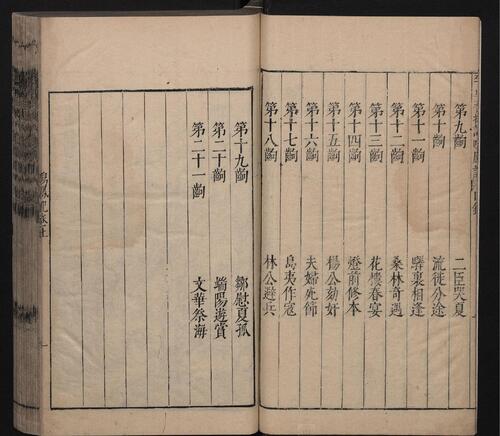 第九齣 二臣哭夏
第十齣 流徙分途
第十一齣 驛裏相逢
第十二齣 桑林奇遇
第十三齣 花樓春宴
第十四齣 燈前修本
第十五齣 楊公劾奸
第十六齣 夫婦死節
第十七齣 島夷作寇
第十八齣 林公避兵
第十九齣 鄒慰夏孤
第二十齣 端陽遊賞
第二十一齣 文華祭海